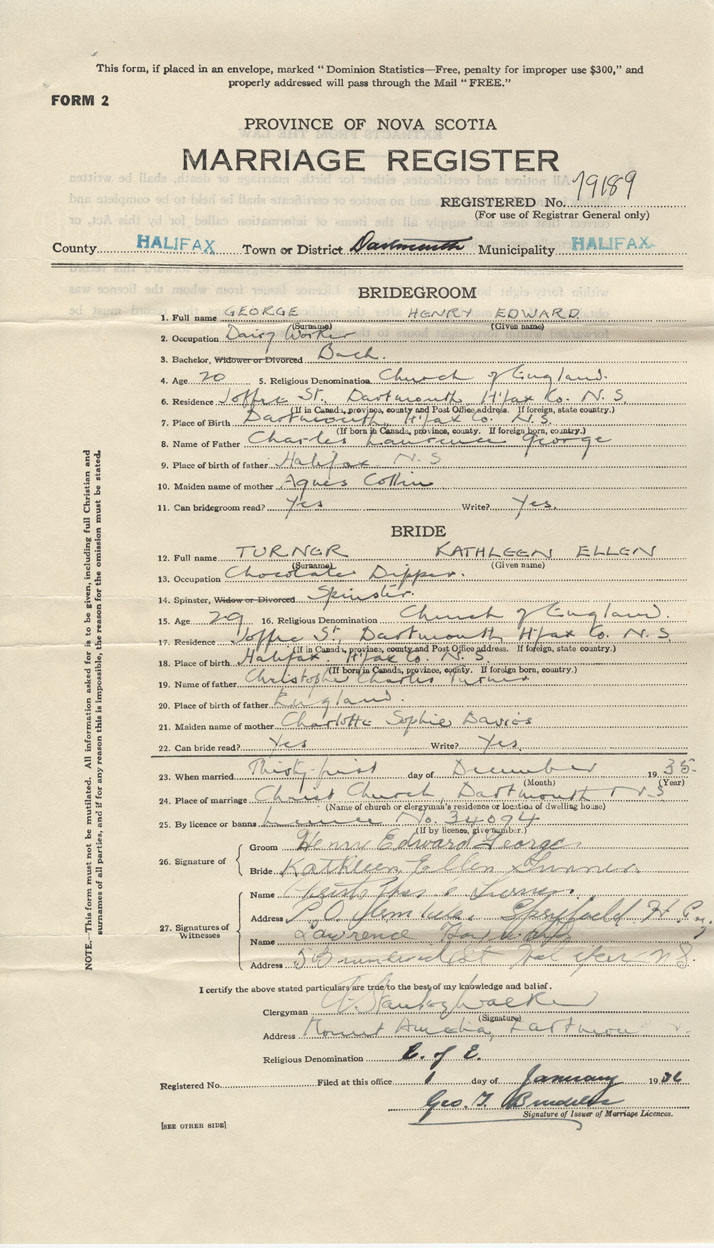 This form, if placed in an envelope, marked " Dominion Statistics—Free, penalty for improper use $300," and
properly addressed will pass through the Mail " FREE."
FORM 2
PROVINCE OF NOVA SCOTIA
MARRIAGE REGISTER
REGISTERED No. 79189
(For use of Registrar General only)
County HALIFAX Town or District Dartmouth Municipality HALIFAX
BRIDEGROOM
1. Full name GEORGE HENRY EDWARD
(Surname) (Given name)
2. Occupation Dairy Worker
3. Bachelor, Widower or Divorced Bach.
4. Age 20 5. Religious Denomination Church of England.
6. Residence Joffre St. Dartmouth, H'fax Co. N. S.
(If in Canada, province, county and Post Office address. If foreign, state country.)
7. Place of Birth Dartmouth, H'fax Co. N.S.
(If born in Canada, province, county. If foreign born, country.)
8. Name of Father Charles Lawrence George
9. Place of birth of father Halifax N.S
10. Maiden name of mother Agnes
11. Can bridegroom read? Yes Write? Yes.
BRIDE
12. Full name TURNER KATHLEEN ELLEN
(Surname) (Given name)
13. Occupation Chocolate Dipper.
14. Spinster, Widow or Divorced Spinster.
15. Age 29 16. Religious Denomination Church of England.
17. Residence Joffre St, Dartmouth H'fax Co. N. S
(If in Canada, province, county and Post Office address. If foreign, state country.)
18. Place of birth Halifax, H'fax Co. N. S.
(If born in Canada, province, county. If foreign born, country.)
19. Name of father Christopher Charles Turner
20. Place of birth of father England.
21. Maiden name of mother Charlotte Sophie Davies
22. Can bride read? Yes Write? Yes.
23. When married Thirty-first day of December 1935
(Month) (Year)
24. Place of marriage Christ Church, Dartmouth N.S
(Name of church or clergyman's residence or location of dwelling house)
25. By licence or banns Licence No. 34094
(If by licence, give number.)
26. Signature of
Groom Henry Edward George
Bride Kathleen Ellen Turner
27. Signatures of Witnesses
Name Turner.
Address P.O. Spryfield H Co.
Name Lawrence
Address St Halifax N.S.
I certify the above stated particulars are true to the best of my knowledge and belief.
Clergyman Walker
(Signature)
Address Mount Amelia, Dartmouth
Religious Denomination C. of E.
Registered No. Filed at this office 1 day of January 1936
Geo. T.
Signature of Issuer of Marriage Licences.
[SEE OTHER SIDE]
NOTE.—This form must not be mutilated. All information asked for is to be given, including full Christian and
surnames of all parties, and if for any reason this is impossible, the reason for the omission must be stated.